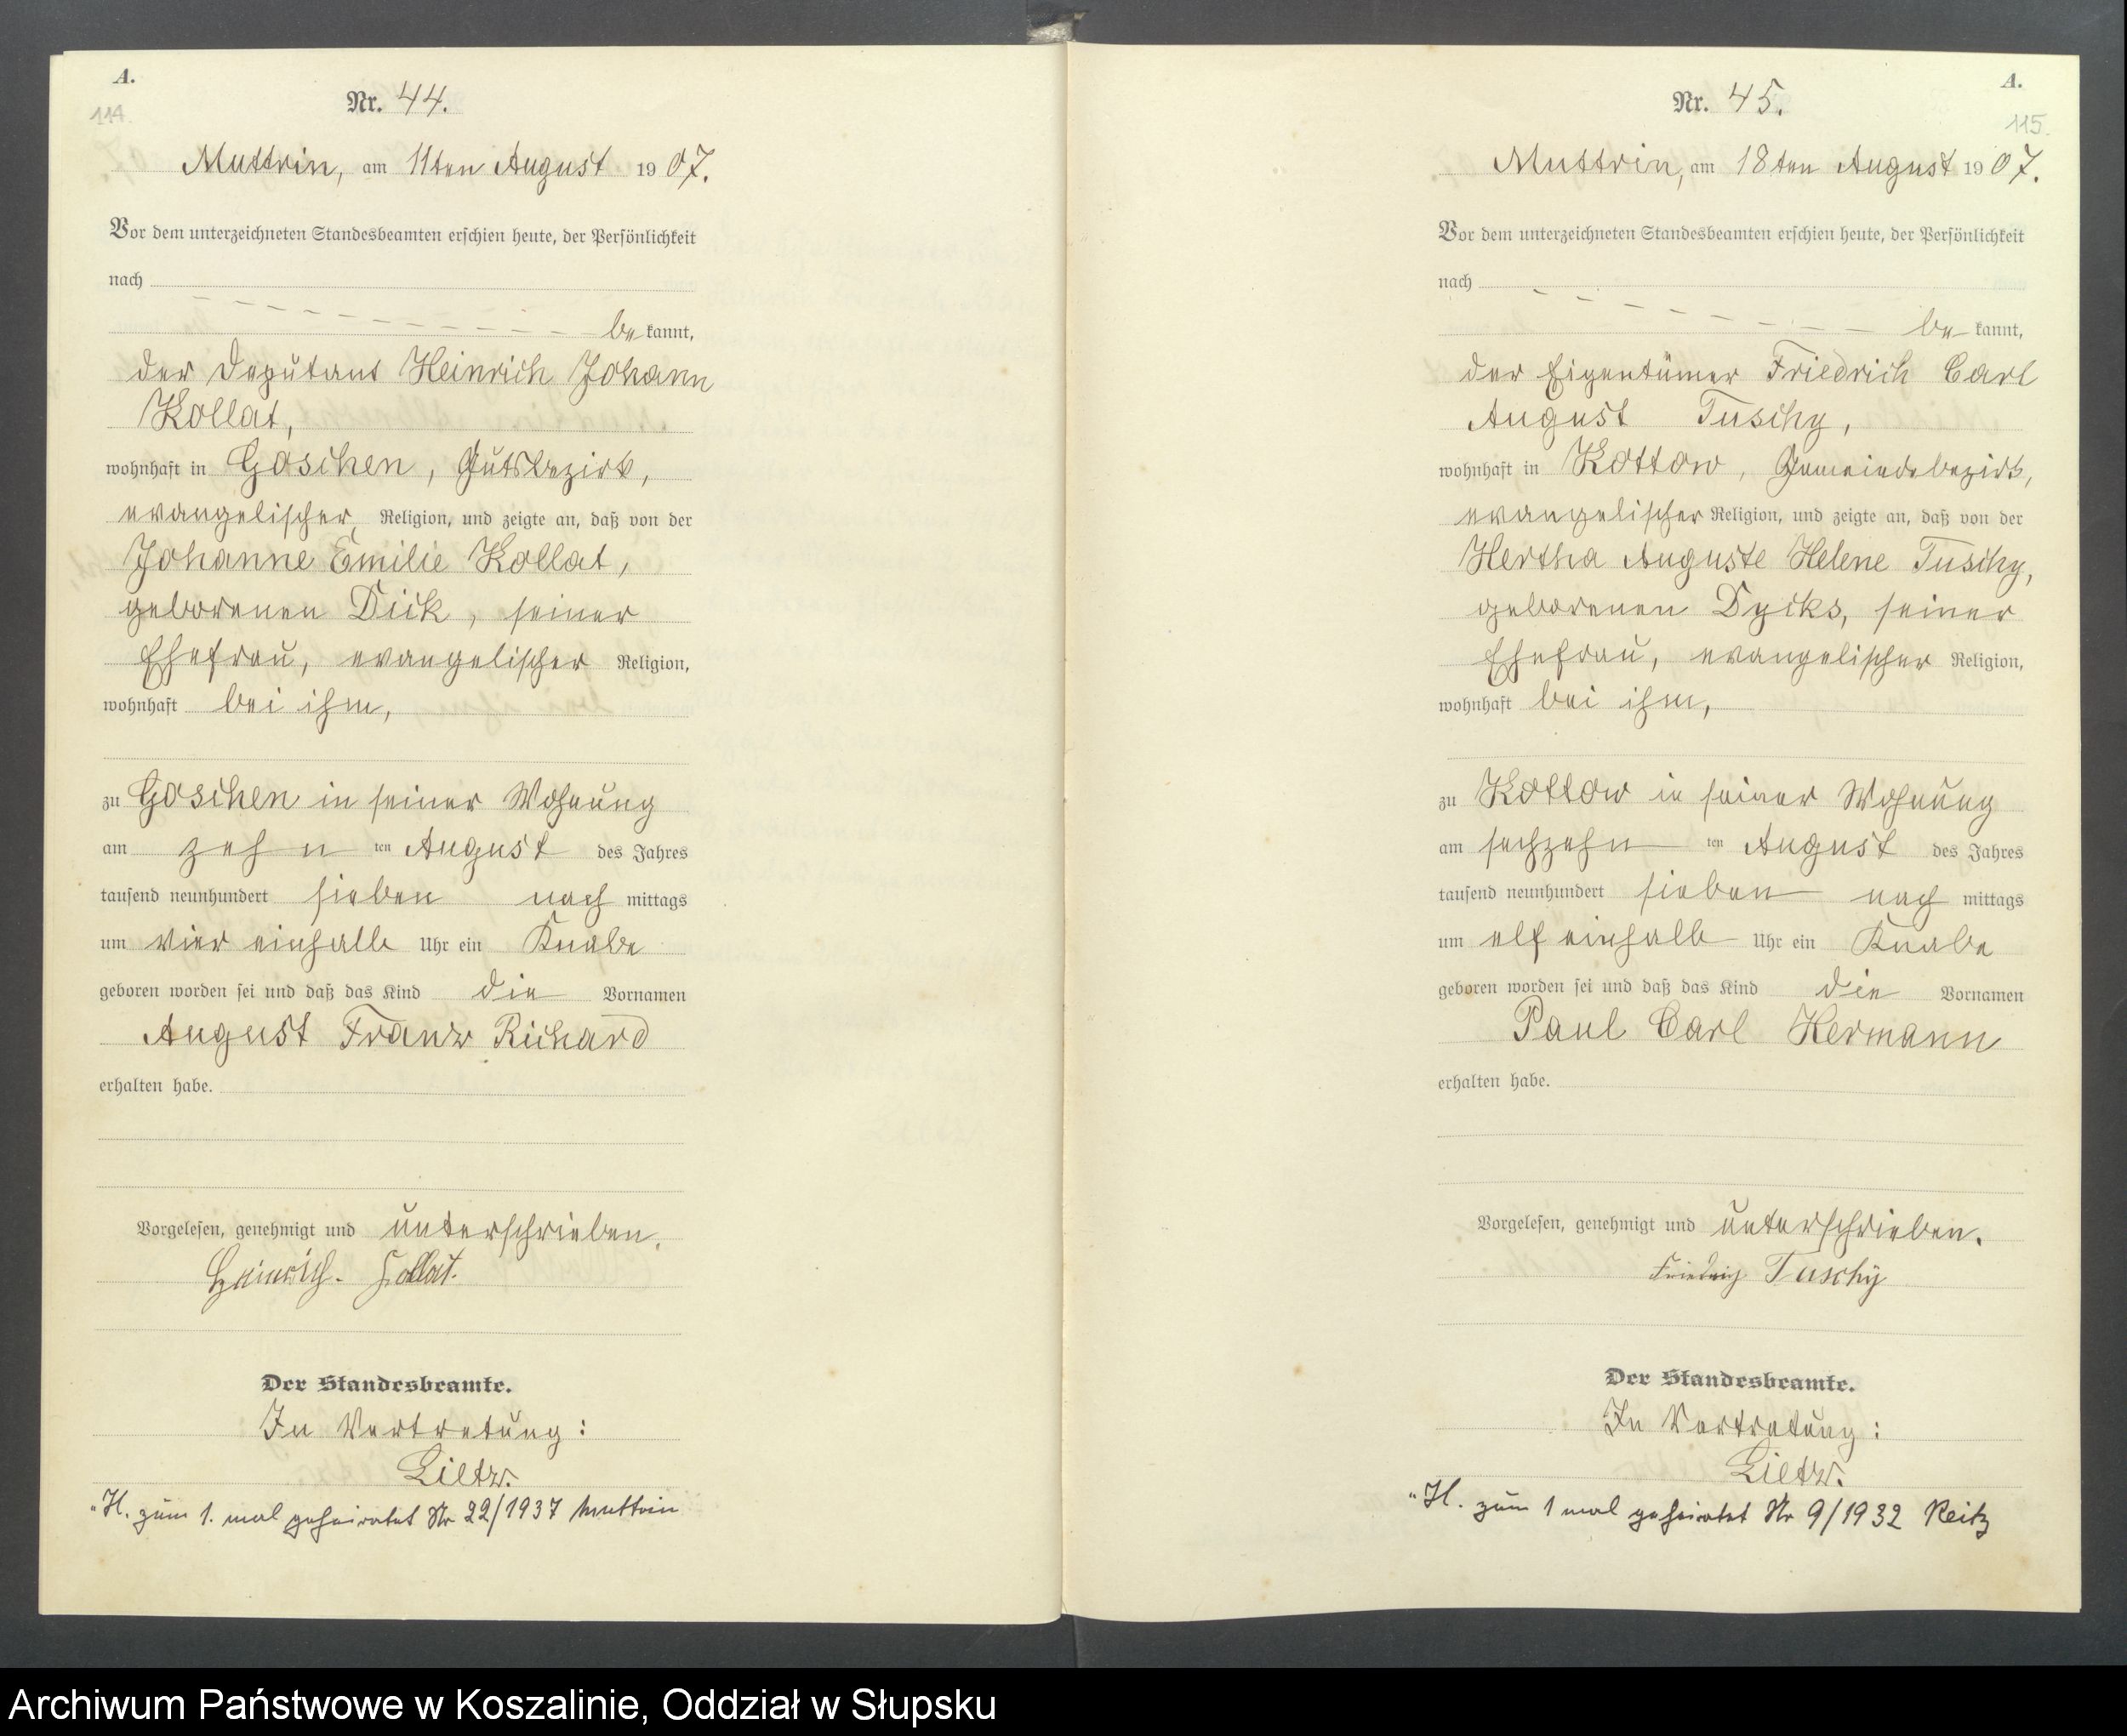 A.
114.
Nr. 44.
Muttrin, am 11ten August 1907.
Vor dem unterzeichneten Standesbeamten erschien heute, der Persönlichkeit
nach
be kannt,
der Deputant Heinrich Johann
Kollat,
wohnhaft in Goschen, Gutsbezirk,
evangelischer Religion, und zeigte an, daß von der
Johanne Emilie Kollat,
geborenen Dick, seiner
Ehefrau, evangelischer Religion,
wohnhaft bei ihm,
zu Goschen in seiner Wohnung
am zehn ten August des Jahres
tausend neunhundert sieben nach mittags
um vier einhalb Uhr ein Knabe
geboren worden sei und daß das Kind die Vornamen
August Franz Richard
erhalten habe.
Vorgelesen, genehmigt und unterschrieben.
Heinrich. Kollat.
Der Standesbeamte.
In Vertretung:
Lietz.
"H. zum 1. mal geheiratet Nr 22/1937 Muttrin
A.
115.
Nr. 45.
Muttrin, am 18ten August 1907.
Vor dem unterzeichneten Standesbeamten erschien heute, der Persönlichkeit
nach
be kannt,
der Eigentümer Friedrich Carl
August Tuschy,
wohnhaft in Kottow, Gemeindebezirk,
evangelischer Religion, und zeigte an, daß von der
Hertha Auguste Helene Tuschy,
geborenen Dycks, seiner
Ehefrau, evangelischer Religion,
wohnhaft bei ihm,
zu Kottow in seiner Wohnung
am sechzehn ten August des Jahres
tausend neunhundert sieben nach mittags
um elf einhalb Uhr ein Knabe
geboren worden sei und daß das Kind die Vornamen
Paul Carl Hermann
erhalten habe.
Vorgelesen, genehmigt und unterschrieben.
Friedrich Tuschy
Der Standesbeamte.
In Vertretung:
Lietz.
"H. zum 1 mal geheiratet Nr 9/1932 Reitz
Archiwum Państwowe w Koszalinie, Oddział w Słupsku